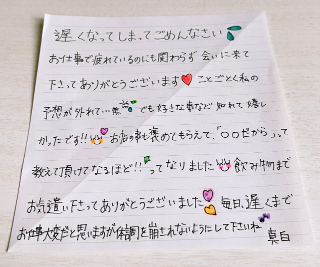 遅くなってしまってごめんなさい
お仕事で疲れているのにも関わらず 会いに来て
下さってありがとうございます ことごとく私の
予想が外れてい… でも好きな事など知れて嬉し
かったです!! お店の事も褒めてもらえて、「〇〇だから」って
教えて頂けてなるほど!!ってなりました 飲み物まで
お気遣い下さってありがとうございました 毎日、遅くまで
お仕事大変だと思いますが体調を崩されないようにして下さいね 真白